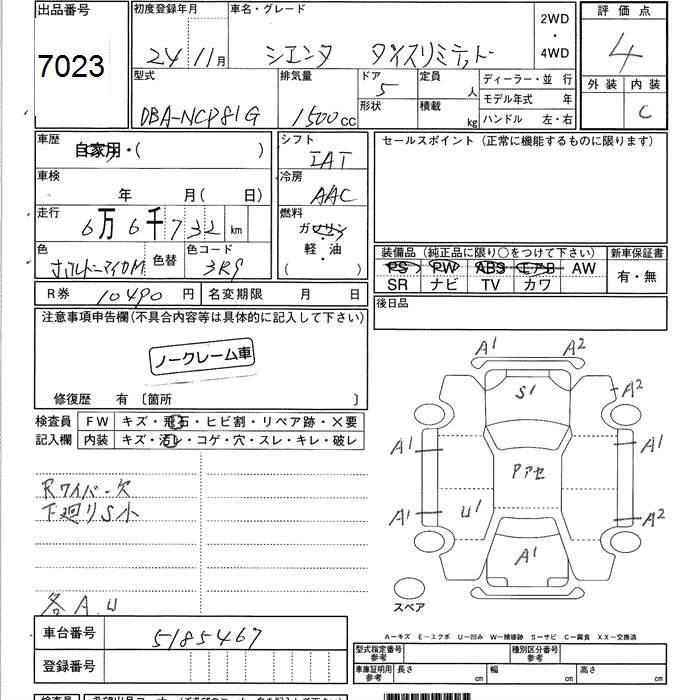 出品番号 初度登録年月 車名・グレード 2WD・4WD 評価点
7023 24 11月 シエンタ ダイスリミテッド 4
型式 排気量 ドア 定員 ディーラー・並 行 外装 内装
DBA-NCP81G 1500cc 5 人 モデル年式 年 C
形状 積載 kg ハンドル 左・右
車歴 自家用・( ) シフト IAT セールスポイント (正常に機能するものに限ります)
車検 年 月(日) 冷房 AAC
走行 6万6千732km 燃料 ガソリン・軽・油 ( )
色 色替 色コード 3R9
装備品 (純正品に限り○をつけて下さい) 新車保証書
PS PW ABS エアB AW 有・無
SR ナビ TV カワ
R券 10490円 名変期限 月 日 後日品
注意事項申告欄(不具合内容等は具体的に記入して下さい)
ノークレーム車
修復歴 有 〔箇所 〕
検査員 FW キズ・飛石・ヒビ割・リペア跡・×要
記入欄 内装 キズ・汚レ・コゲ・穴・スレ・キレ・破レ
Rワイパー欠
下廻りS小
各A.U
A1 A2
S1
A2
A1 A1
Pアセ
A1 U1 A2
A1
スペア
車台番号 5185467
登録番号
A-キズ E-エクボ U-凹み W-補修跡 S-サビ C-腐食 XX-交換済
型式指定番号 参考 種別区分番号 参考
車庫証明用 参考 長さ cm 幅 cm 高さ cm